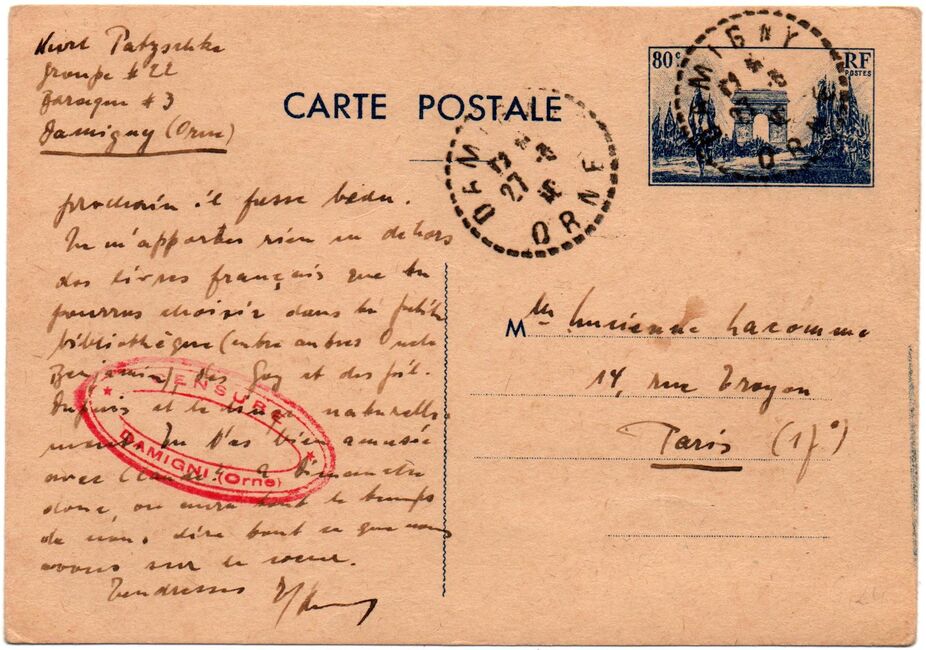 Kurt Patzschke
Groupe # 22
Baraque # 3
Damigny (Orne)
CARTE POSTALE
80c
RF
POSTES
DAMIGNY
ORNE
27
DAMIGNY
27
ORNE
prochain il fasse beau.
Tu m'apportes rien en dehors
des livres français que tu
pourras choisir dans la petite
bibliothèque (entre autres
Benjamin), des et des
et le linge naturelle-
ment. Tu t'as bien amusée
avec Claude? A Dimanche
donc, on aura tout le temps
de dire tout ce que nous
avons sur le coeur.
Tendresses
CENSURE
DAMIGNI (Orne)
Mlle Lucienne Lacomme
14, rue Troyon
Paris (17e)